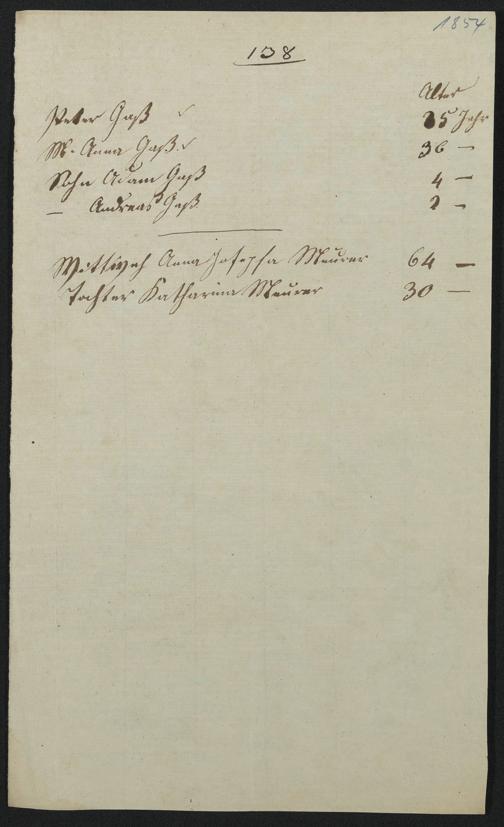 1854
138
Alter
Peter Gaß 35 Jahr
M. Anna Gaß 36 —
Sohn Adam Gaß 4 —
— Andreas Gaß 2 —
Wittwe Anna Josepha Meurer 64 —
Tochter Katharina Meurer 30 —